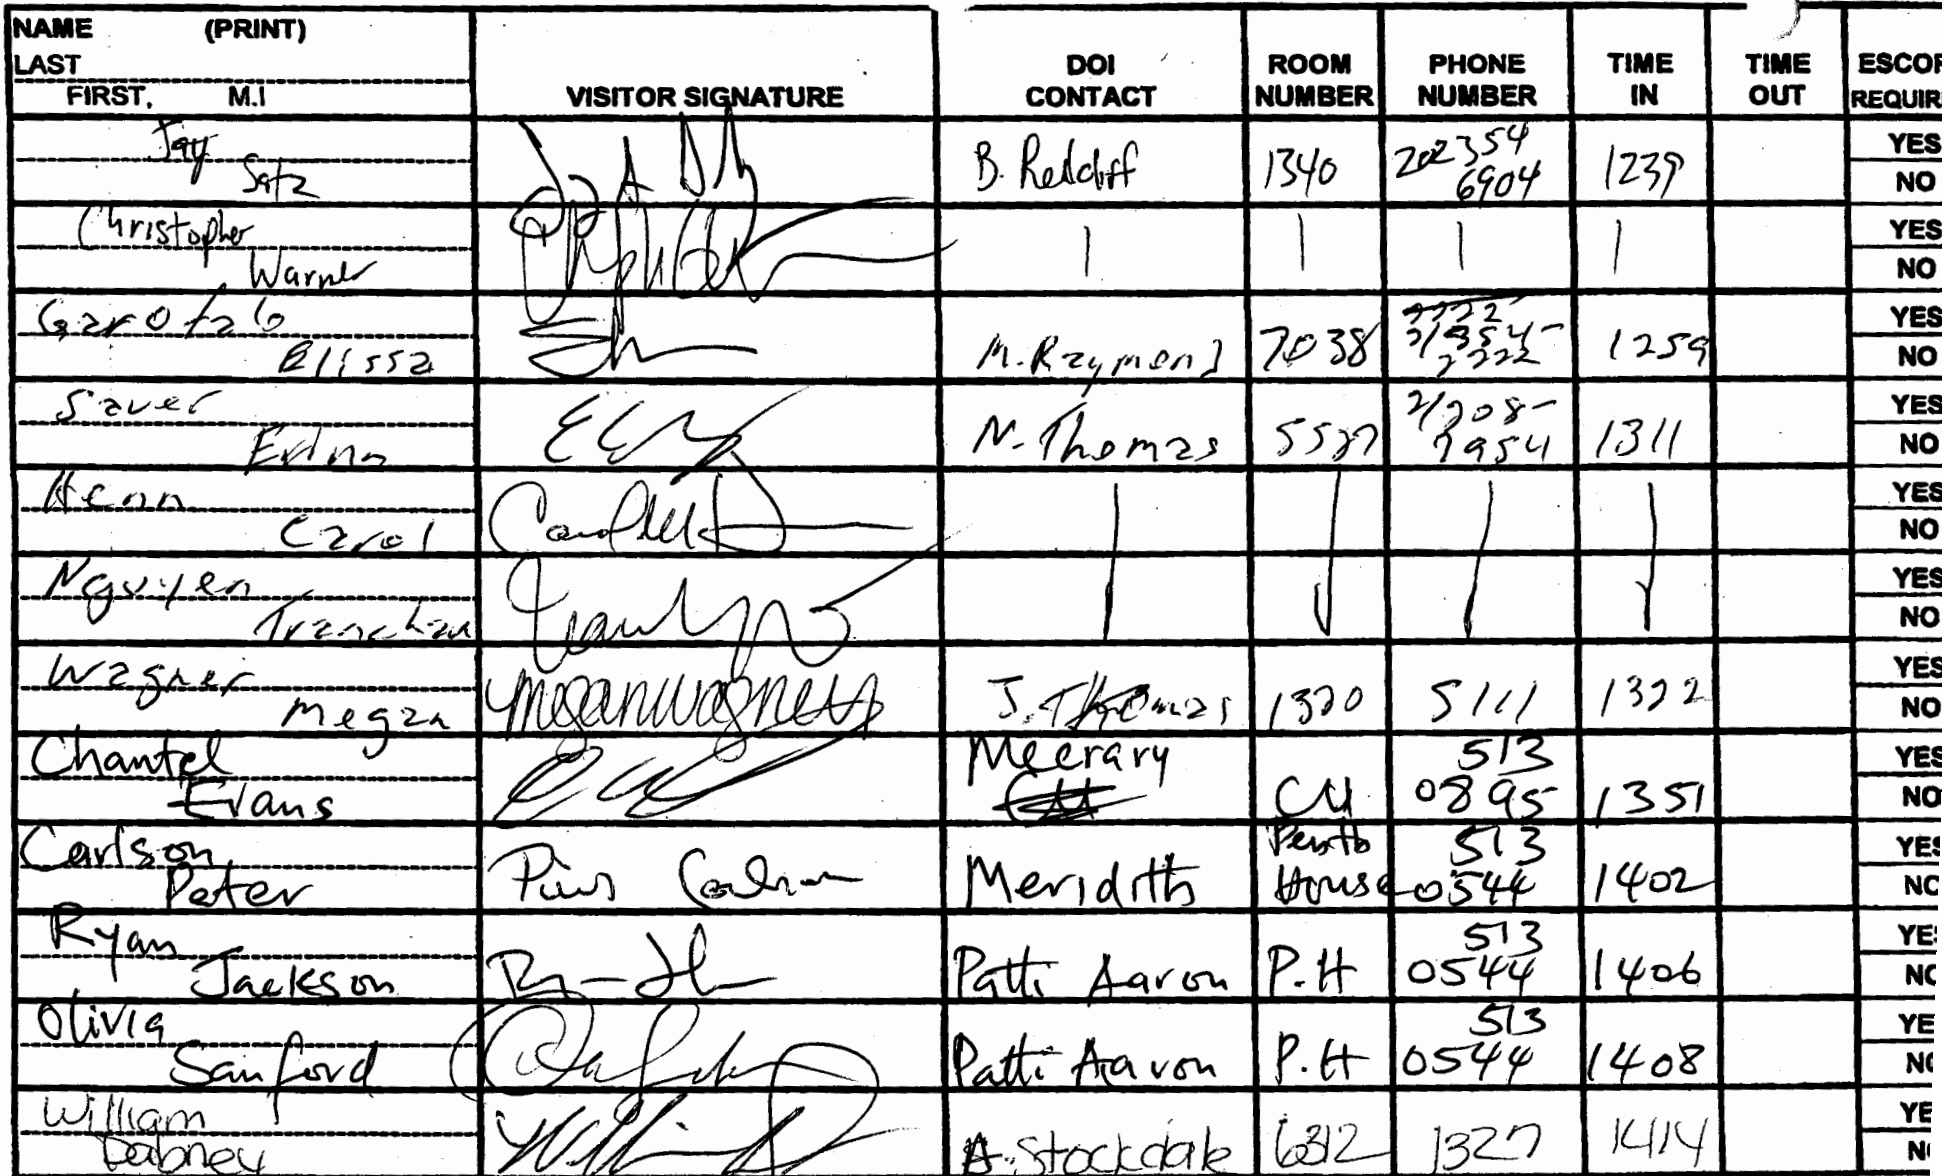 NAME (PRINT)
LAST
FIRST, M.I
VISITOR SIGNATURE
DOI CONTACT
ROOM NUMBER
PHONE NUMBER
TIME IN
TIME OUT
ESCOR
REQUIR
Jay
Satz
B. Redcliff 1340 202 354 6904 1239
YES
NO
Christopher
Warner
YES
NO
Garofalo
Elissa
M. Raymond 7038 1259
YES
NO
Saver
N. Thomas 1311
YES
NO
Henn
Carol
YES
NO
Nguyen
Tranchau
YES
NO
Wagner
Megan
megan wagner
J. Thomas 1320 5111 1322
YES
NO
Chantel
Evans
Meerary CM 513 0895 1351
YES
NO
Carlson,
Peter
Meridith House 513 0544 1402
YES
NO
Ryan
Jackson
Patti Aaron P.H 513 0544 1406
YE
NO
Olivia
Sanford
Patti Aaron P.H 513 0544 1408
YE
N
William
Dabney
A. Stockdale 6312 1327 1414
YE
N